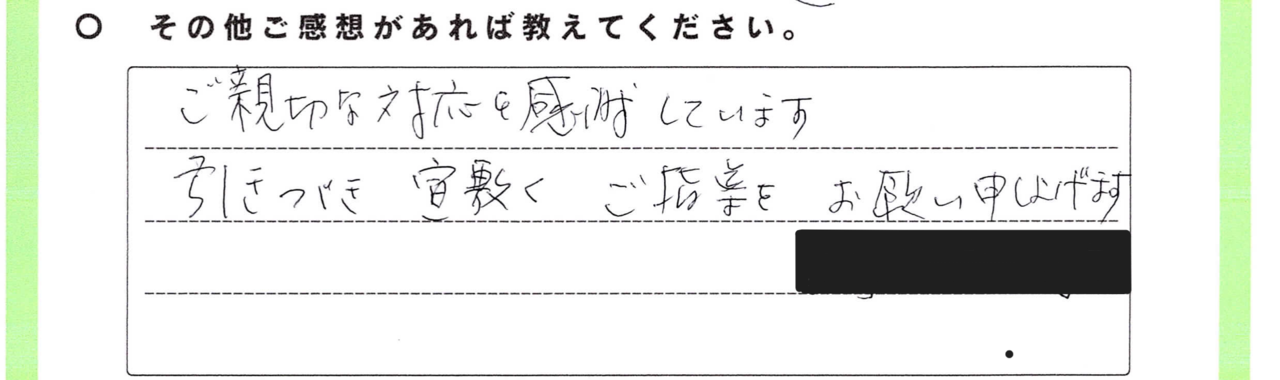 ○ その他ご感想があれば教えてください。
ご親切な対応を感謝しています
引きつづき 宜敷く ご指導を お願い申し上げます